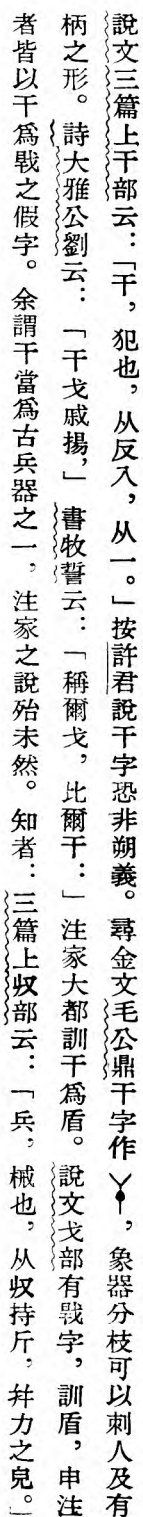 說文三篇上干部云：「干，犯也，从反入，从一。」按許君說干字恐非朔義。尋金文毛公鼎干字作，象器分枝可以刺人及有
柄之形。詩大雅公劉云：「干戈戚揚，」書牧誓云：「稱爾戈，比爾干：」注家大都訓干爲盾。說文戈部有戰字，訓盾，申注
者皆以干爲戰之假字。余謂干當爲古兵器之一，注家之說殆未然。知者：三篇上収部云：「兵，械也，从収持斤，幷力之皃。」